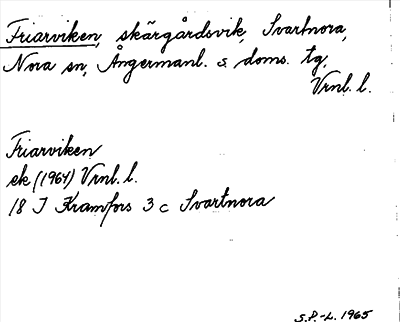 Friarviken, skärgårdsvik, Svartnora,
Nora sn, Ångermanl. s. doms. tg,
Vrnl. l.
Friarviken
ek (1964) Vrnl. l.
18 I Kramfors 3 c Svartnora
S.P.-L. 1965